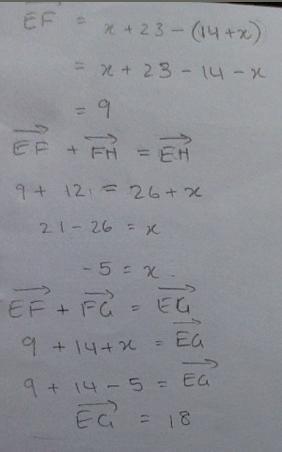 EF = x + 23 - (14 + x)
= x + 23 - 14 - x
= 9
EF + FH = EH
9 + 12 = 26 + x
21 - 26 = x
-5 = x.
EF + FG = EG
9 + 14 + x = EG
9 + 14 - 5 = EG
EG = 18